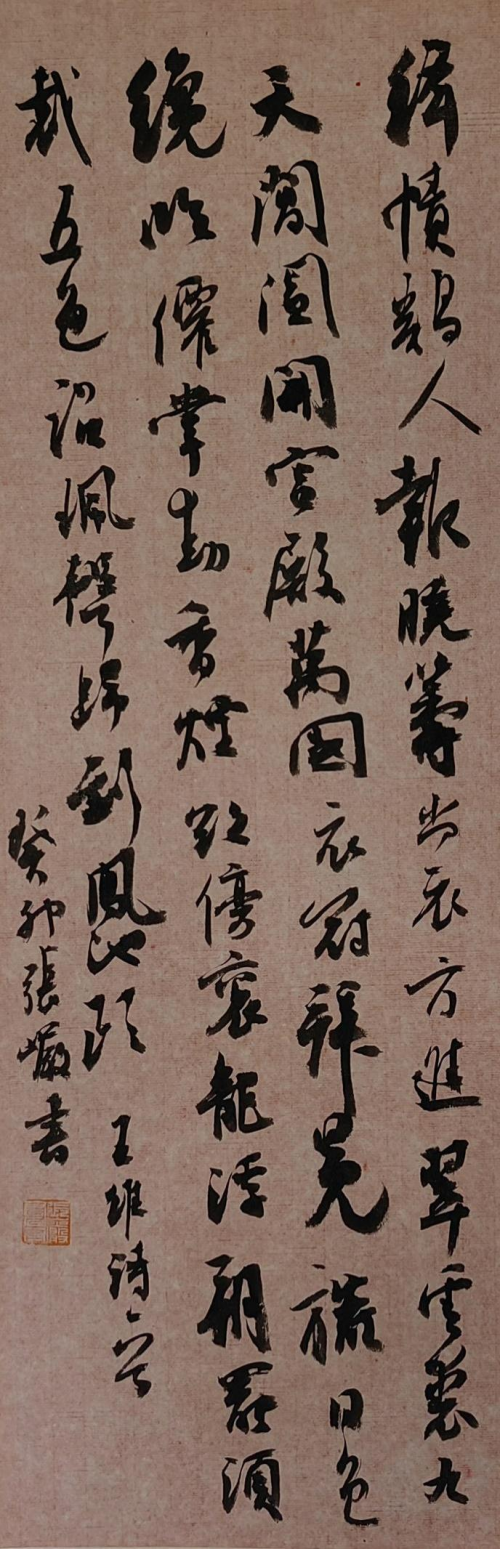 絳幘鷄人報曉籌尚衣方進翠雲裘九
天閶闔開宮殿萬國衣冠拜冕旒日色
纔臨僊掌動香煙欲傍袞龍浮朝罷須
裁五色詔珮聲歸到鳳池頭 王維詩一首
癸卯張巖書